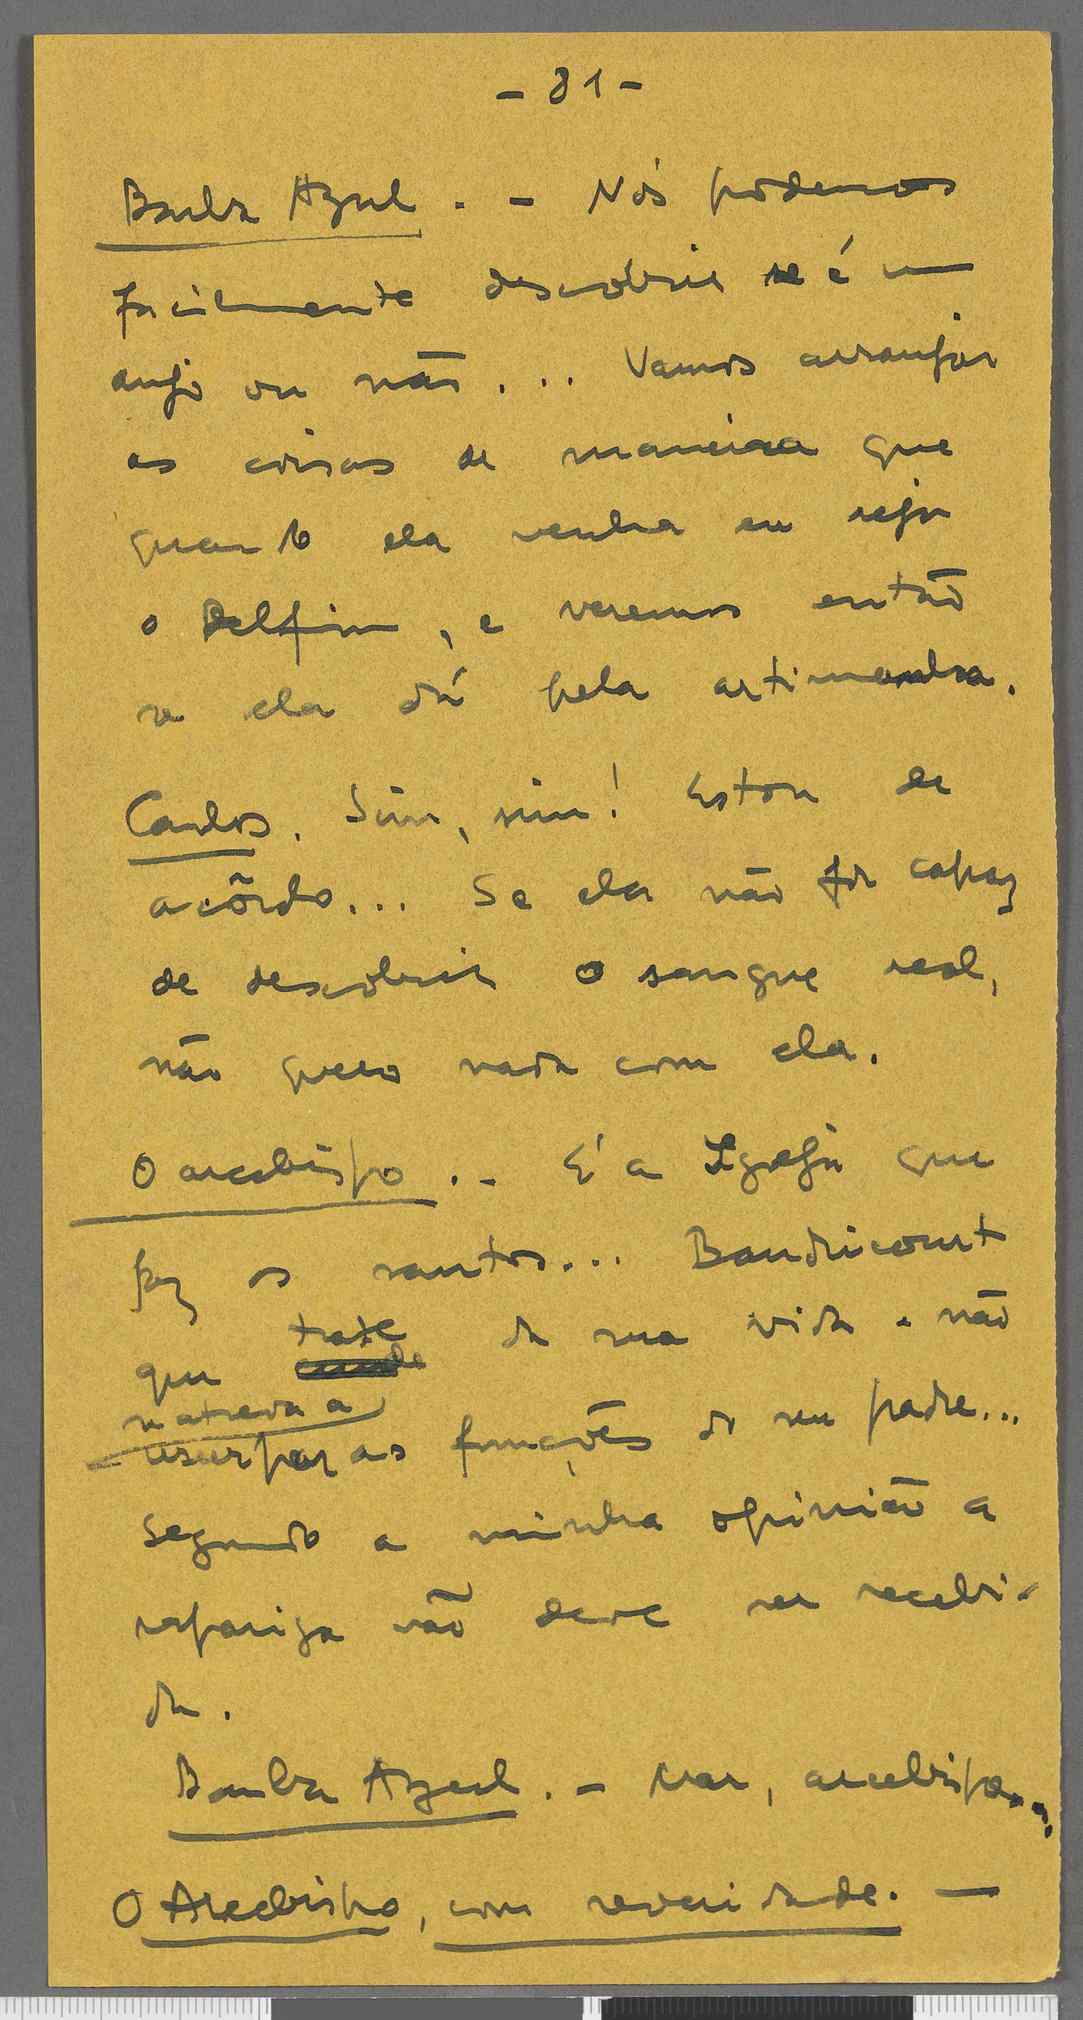 - 81 -
Barba Azul. - Nós podemos
facilmente descobrir se é um
anjo ou não... Vamos arranjar
as coisas de maneira que
quando ela venha eu seja
o Delfim, e veremos então
se ela dá pela artimanha.
Carlos. Sim, sim! Estou de
acôrdo... Se ela não for capaz
de descobrir o sangue real,
não quero nada com ela.
O arcebispo. - É a Igreja que
faz os santos... Baudricourt
que trate da sua vida e não
se atreva a
usurpar as funções do seu padre...
Segundo a minha opinião a
rapariga não deve ser recebi-
da.
Barba Azul. - Mas, arcebispo...
O Arcebispo, com severidade. -